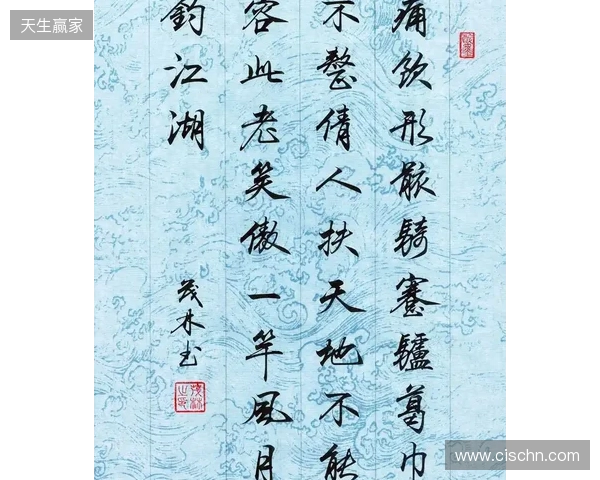 天生赢家
痛飲形骸騎蹇驢葛巾
不整倩人扶天地不能
容此老笑傲一竿風月
釣江湖
茂林书
www.cischn.com